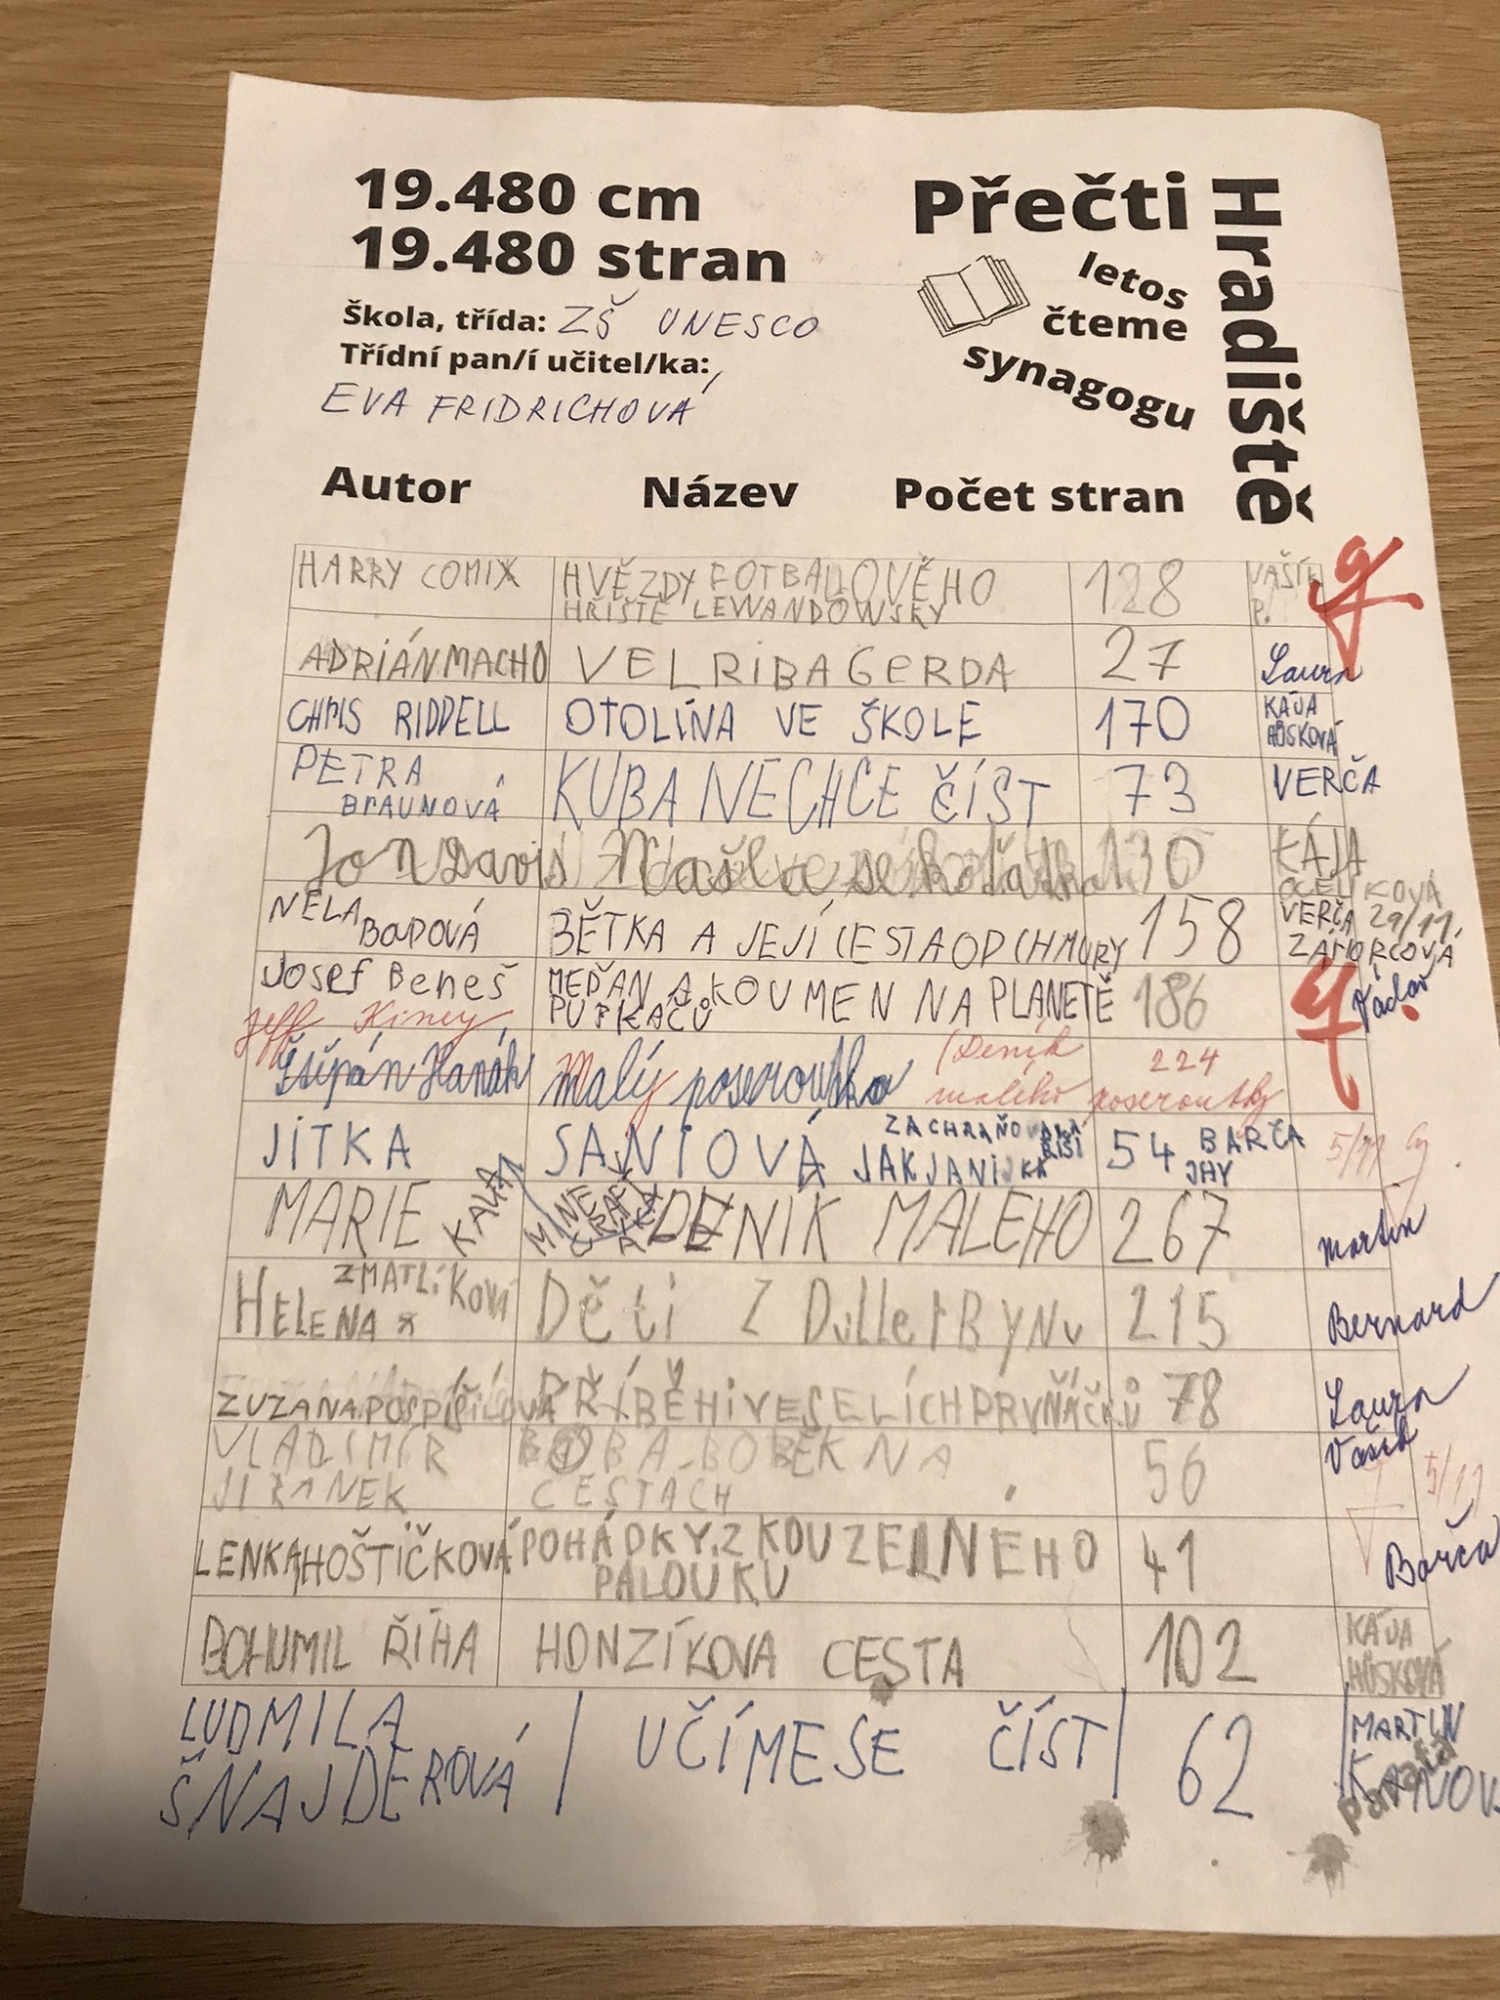 19.480 cm
19.480 stran
Přečti
Hradiště
letos
čteme
synagogu
Škola, třída: ZŠ UNESCO
Třídní pan/í učitel/ka:
EVA FRIDRICHOVÁ
Autor Název Počet stran
HARRY COMIX HVĚZDY FOTBALOVÉHO 128 VAŠÍK
HŘIŠTĚ LEWANDOWSKY P.
ADRIÁN MACHO VELRiBA GERDA 27 Laura
CHRIS RIDDELL OTOLÍNA VE ŠKOLE 170 KÁJA
HŮSKOVÁ
PETRA KUBA NECHCE ČÍST 73 VERČA
BRAUNOVÁ
Jon Davis Našla se koťátka 130 KÁJA
OCELÍKOVÁ
NELA BĚTKA A JEJÍ CESTA OD CHMURY 158 VERČA 29/11.
BODOVÁ ZÁMORCOVÁ
Josef Beneš MEĎAN A KOUMEN NA PLANETĚ 186 Václav
PUFKAČŮ
Jeff Kiney
Štěpán Hanák Malý poseroutka (Deník 224
malého poseroutky
JiTKA SANIOVÁ JAK JANiJKA ZACHRAŇOVALA 54 BÁRČA 5/11
ŘÍŠI JAY
MARIE KALA MINECRAFŤÁKA DENIK MALEHO 267 Martin
HELENA ZMATLÍKOVÁ Děti Z DulletBYNu 215 Bernard
ZUZANA POSPÍŠILOVÁ PŘÍBĚHi VESELÍCH PRVŇÁČKŮ 78 Laura
VLADIMÍR BOBA BOBEK NA 56 Vašík
JIRÁNEK CESTÁCH 5/11
LENKA HOŠTIČKOVÁ POHÁDKY Z KOUZELNÉHO 41 Barča
PALOUKU
BOHUMIL ŘÍHA HONZÍKOVA CESTA 102 KÁJA
HŮSKOVÁ
LUDMILA UČÍME SE ČÍST 62 MARTIN
ŠNAJDEROVÁ